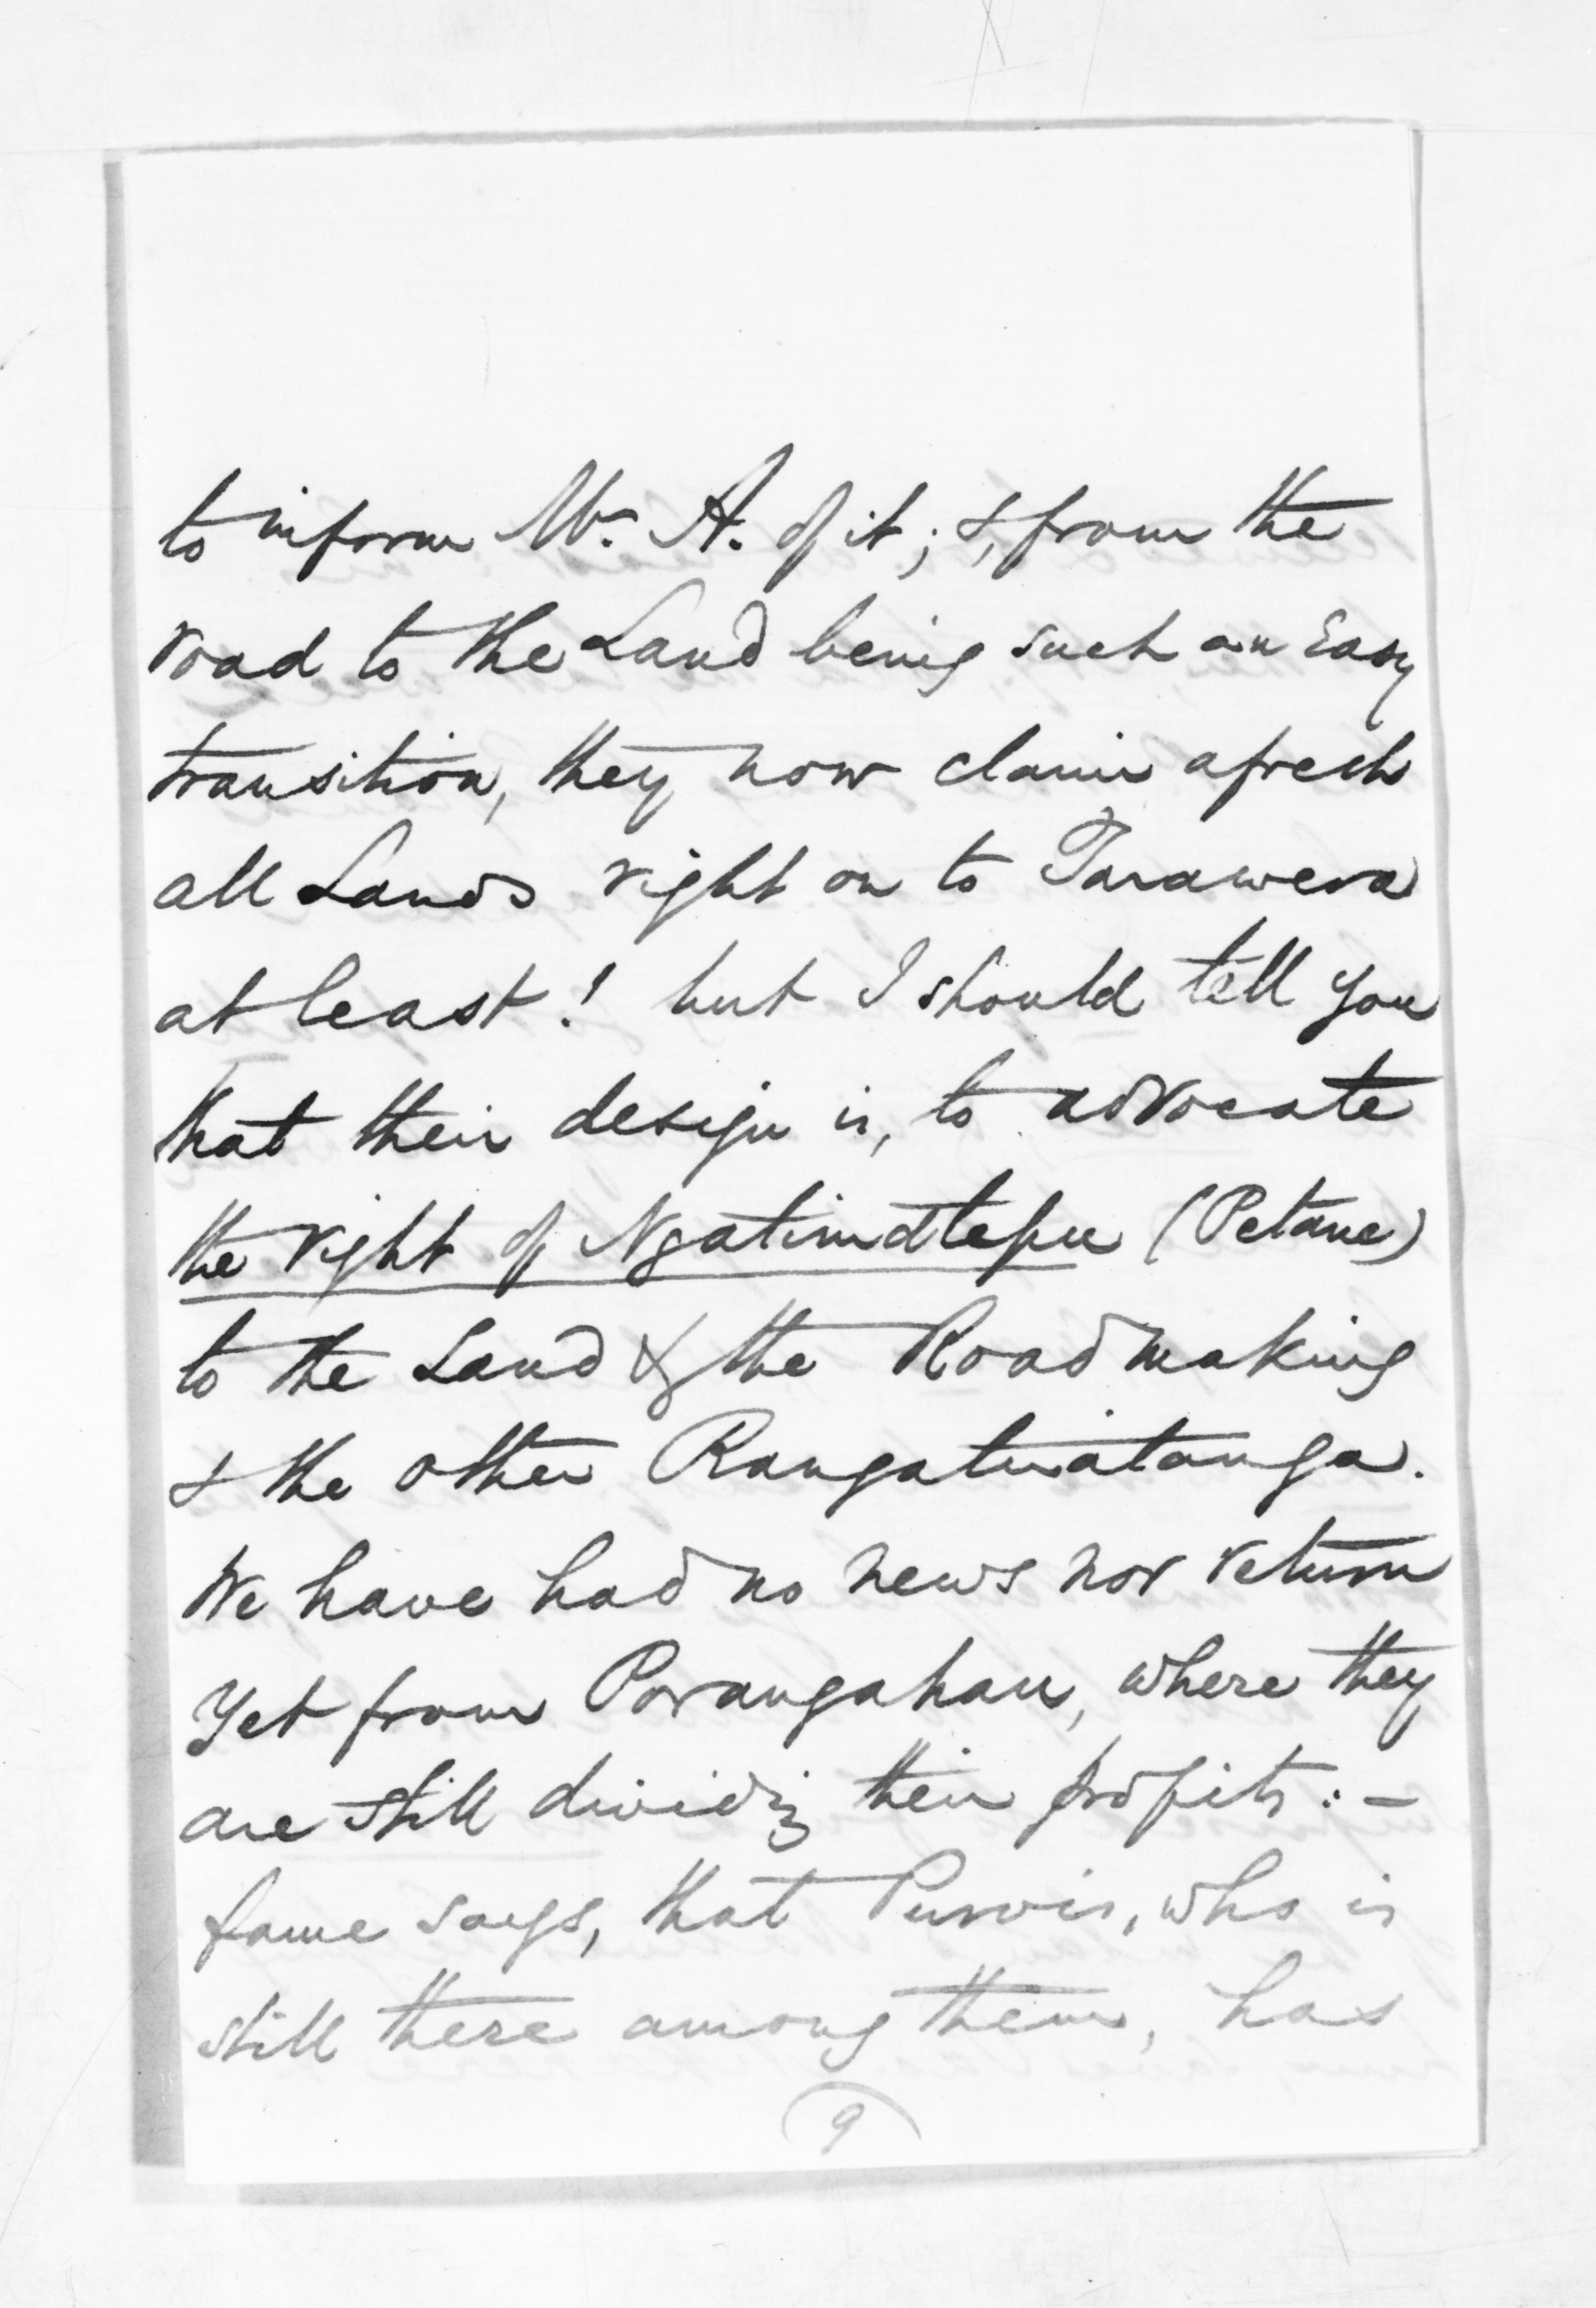 to inform Mr. A. of it; &, from the
road to the Land being such an Easy
transition, they now claim afresh
all Lands right on to Tarawera
at least! but I should tell you
that their design is, to advocate
the right of Ngatimatepu (Petane)
to the Land & the Road making
& the other Rangatiratanga.
We have had no news nor return
Yet from Porangahau, where they
are still dividing their profits:–
fame says, that Purvis, who is
still there among them, has
(9)